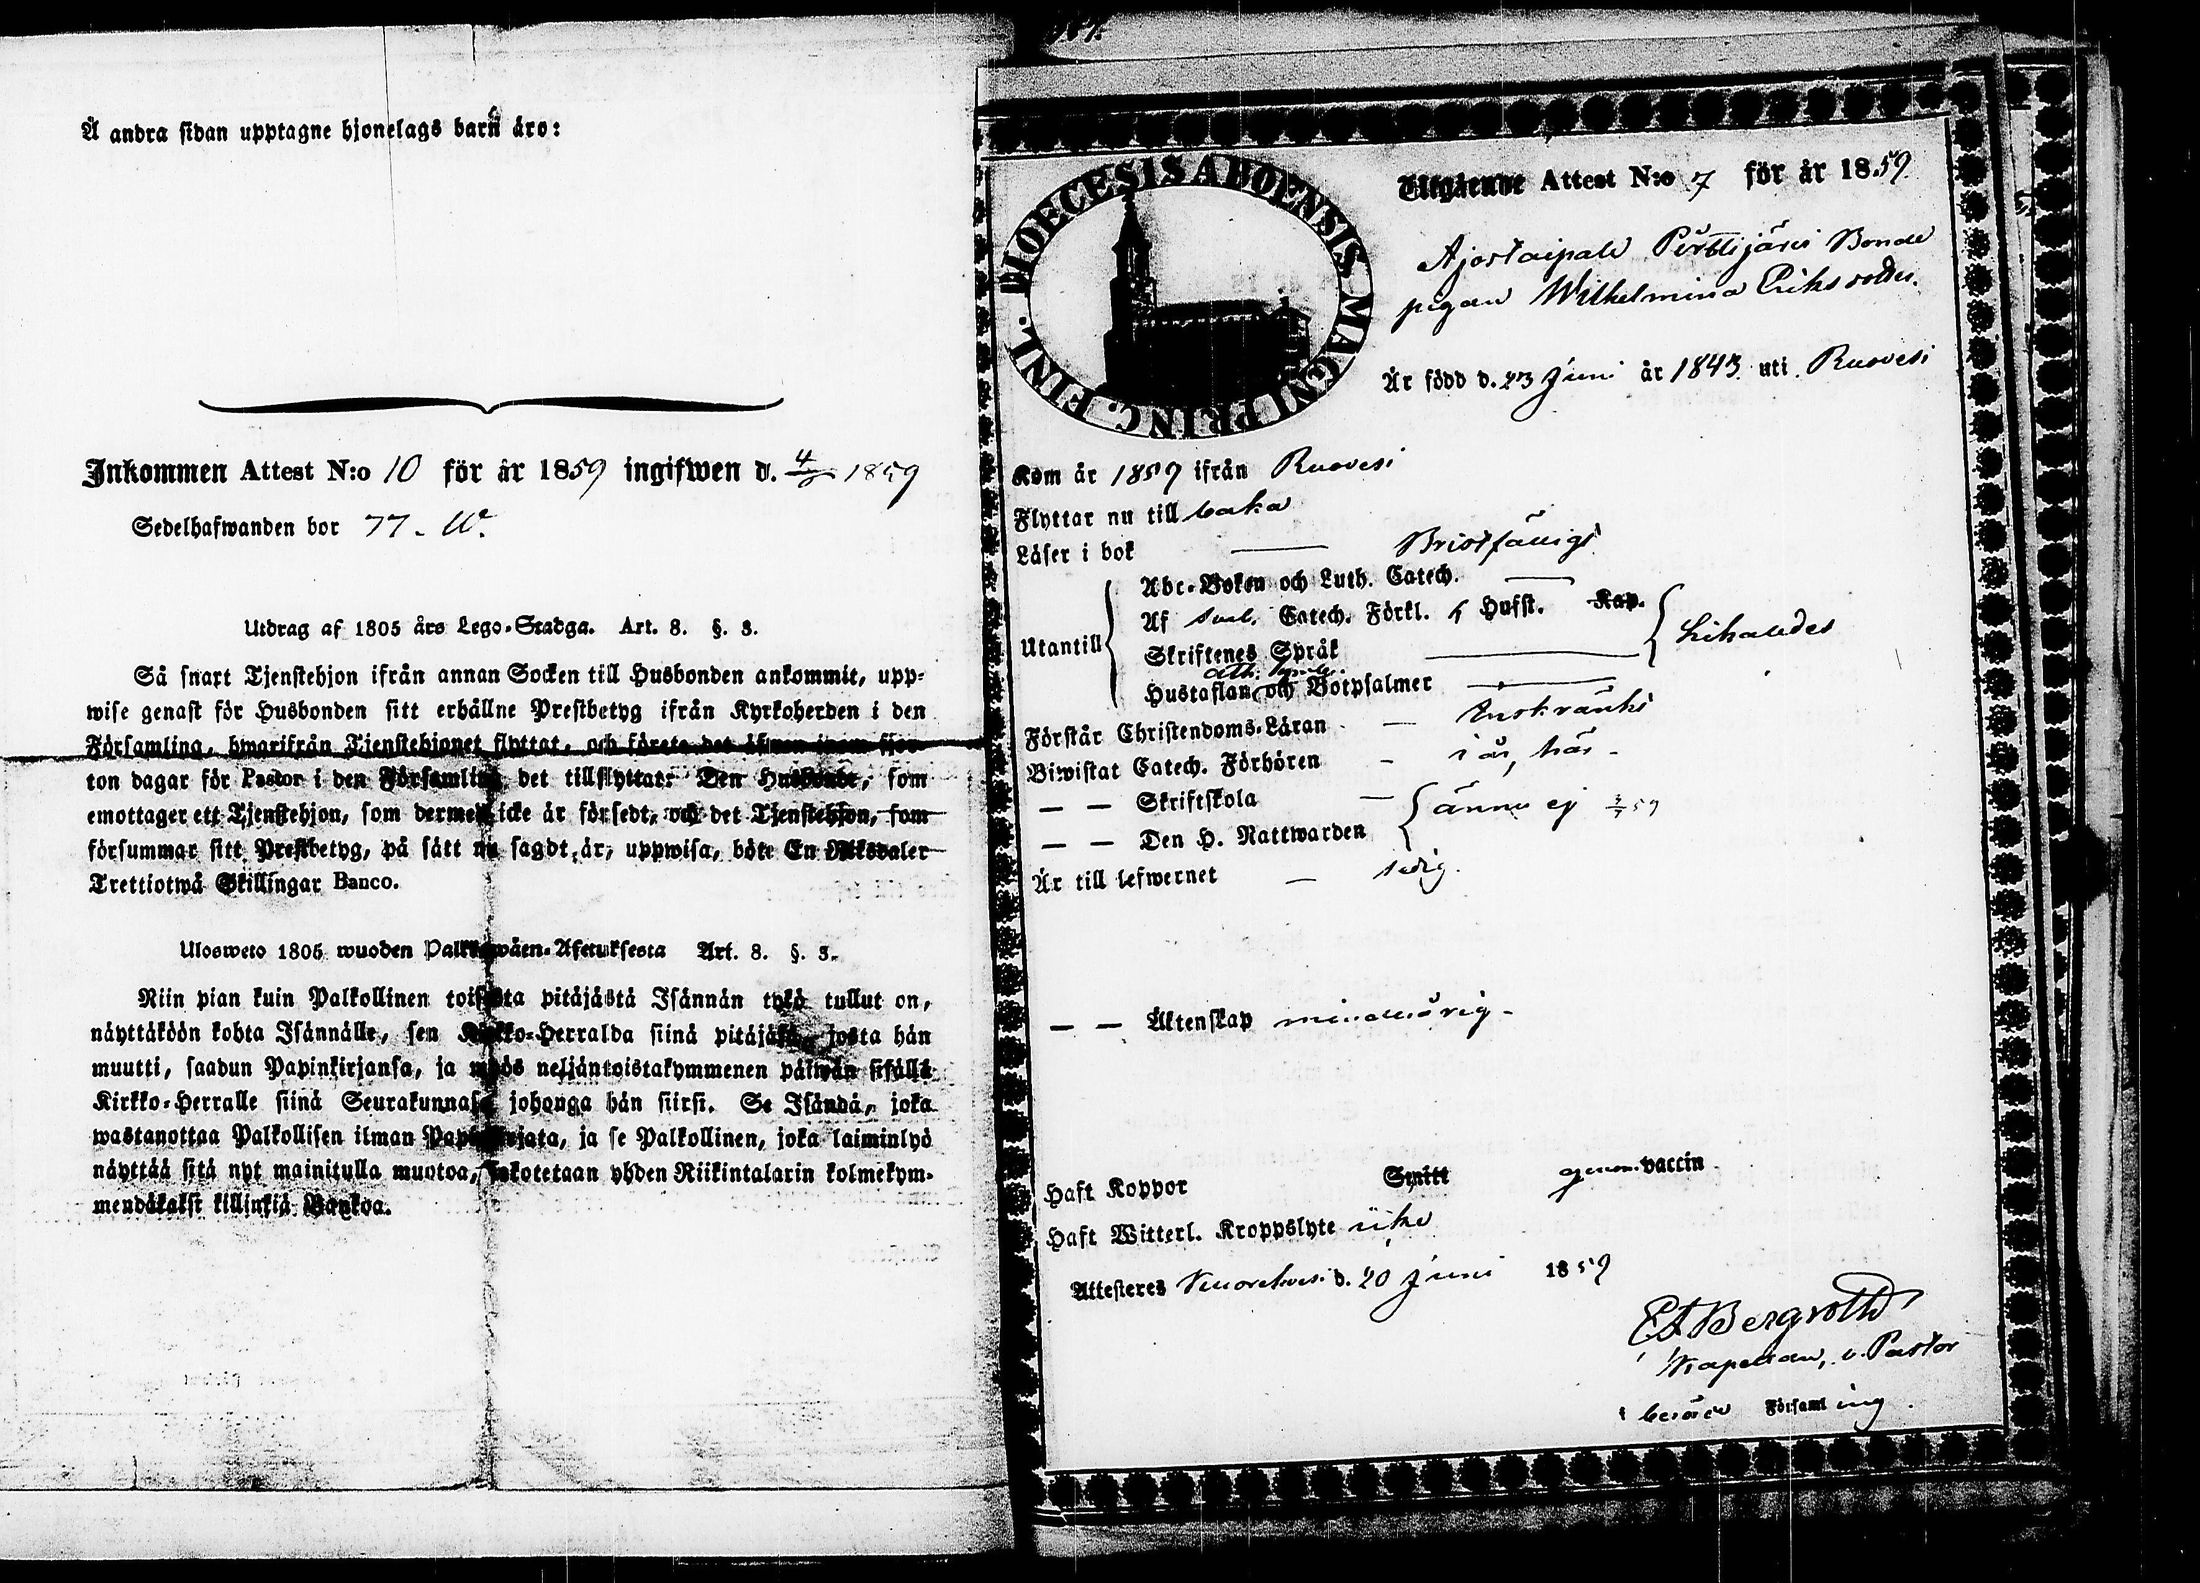 Å andra sidan upptagne hjonelags barn äro:
Inkommen Attest N:o 10 för år 1859 ingifwen d. 1859
Sedelhafwanden bor 77.
Utdrag af 1805 års Lego-Stadga. Art. 8. §. 3.
Så snart Tjenstehjon ifrån annan Socken till Husbonden ankommit, upp-
wise genast för Husbonden sitt erhållne Prestbetyg ifrån Kyrkoherden i den
Församling, hwarifrån Tjenstehjonet flyttat, och förete det äfwen inom fjor-
ton dagar för Pastor i den Församling det tillflyttat. Den Husbonde, som
emottager ett Tjenstehjon, som dermed icke är försedt, och det Tjenstehjon, som
försummar sitt Prestbetyg, på sätt nu sagdt är, uppwisa, böte En Riksdaler
Trettiotwå Skillingar Banco.
Ulosweto 1805 wuoden Palkkawäen-Asetuksesta Art. 8. §. 3.
Niin pian kuin Palkollinen toisesta pitäjästä Isännän tykö tullut on,
näyttäköön kohta Isännälle, sen Kirkko-Herralda siinä pitäjäsä, josta hän
muutti, saadun Papinkirjansa, ja myös neljäntoistakymmenen päiwän sisällä
Kirkko-Herralle siinä Seurakunnasa johonga hän siirsi. Se Isändä, joka
wastanottaa Palkollisen ilman Papinkirjata, ja se Palkollinen, joka laiminlyö
näyttää sitä nyt mainitulla muotoa, sakotetaan yhden Riikintalarin kolmekym-
mendäkaksi killinkiä Bankoa.
DIOECESIS ABOENSIS MAGNI PRINC. FINL.
Utgående Attest N:o 7 för år 1859
Ajostaipale Perttijärvi Bonde
pigan Wilhelmina Eriksdotter.
Är född d. 23 Juni år 1843 uti Ruovesi
Kom år 1857 ifrån Ruovesi
Flyttar nu till baka
Läser i bok Bristfälligt
Abc-Boken och Luth. Catech.
Utantill Af Sveb. Catech. Förkl. Hufst. Kap.
Skriftenes Språk Likaledes
Ath. Symb.
Hustaflan och Botpsalmer
Förstår Christendoms-Läran Inskränkt
Biwistat Catech. Förhören i år, här
— — Skriftskola ännu ej
— — Den H. Nattwarden
Är till lefwernet sedig.
— — Äktenskap minderårig
Haft Koppor Smitt genom vaccin
Haft Witterl. Kroppslyte icke
Attesteres Kuorehvesi d. 20 Juni 1859
Bergroth
Kapellan, v. Pastor
i berörde Församling.